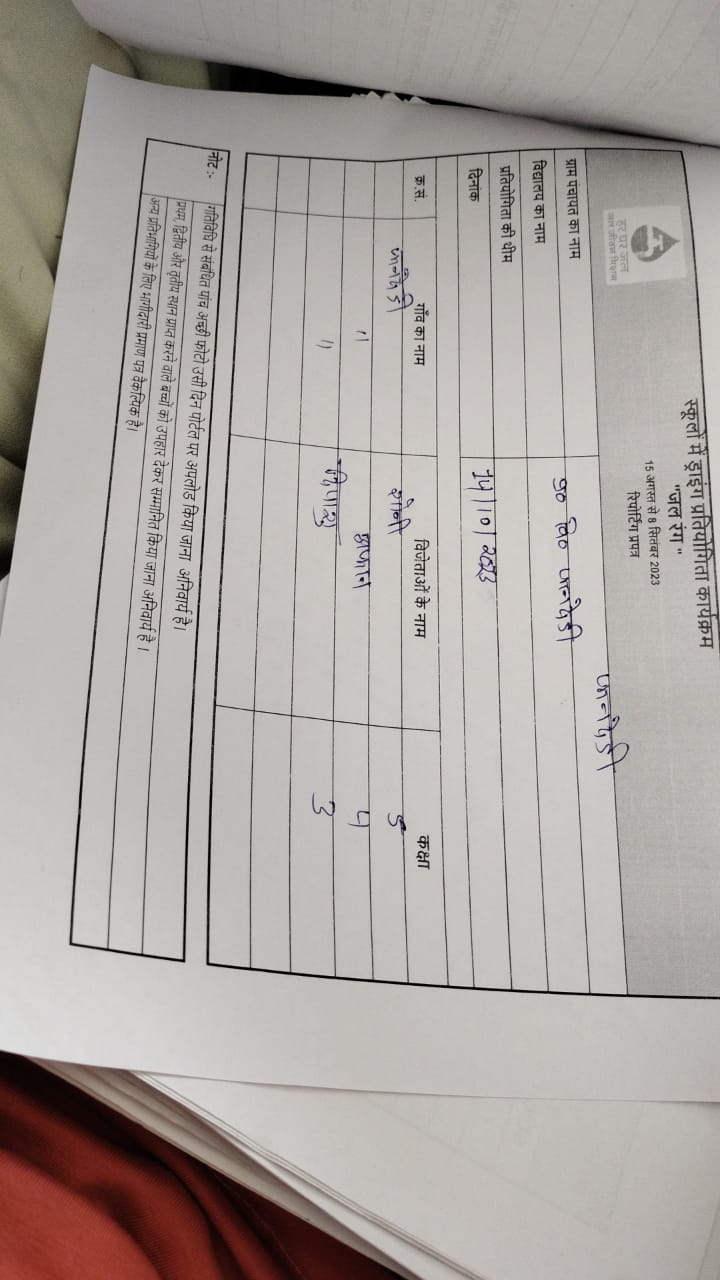 हर घर जल
जल जीवन मिशन
स्कूलों में ड्राइंग प्रतियोगिता कार्यक्रम
"जल रंग"
15 अगस्त से 8 सितंबर 2023
रिपोर्टिंग प्रपत्र
ग्राम पंचायत का नाम
विद्यालय का नाम प्रा० वि०
प्रतियोगिता की थीम
दिनांक 14/10/2023
क्र.सं. गाँव का नाम विजेताओं के नाम कक्षा
5
" 4
" 3
नोट :- गतिविधि से संबंधित पांच अच्छी फोटो उसी दिन पोर्टल पर अपलोड किया जाना अनिवार्य है।
प्रथम, द्वितीय और तृतीय स्थान प्राप्त करने वाले बच्चों को उपहार देकर सम्मानित किया जाना अनिवार्य है।
अन्य प्रतिभागियों के लिए भागीदारी प्रमाण पत्र वैकल्पिक है।